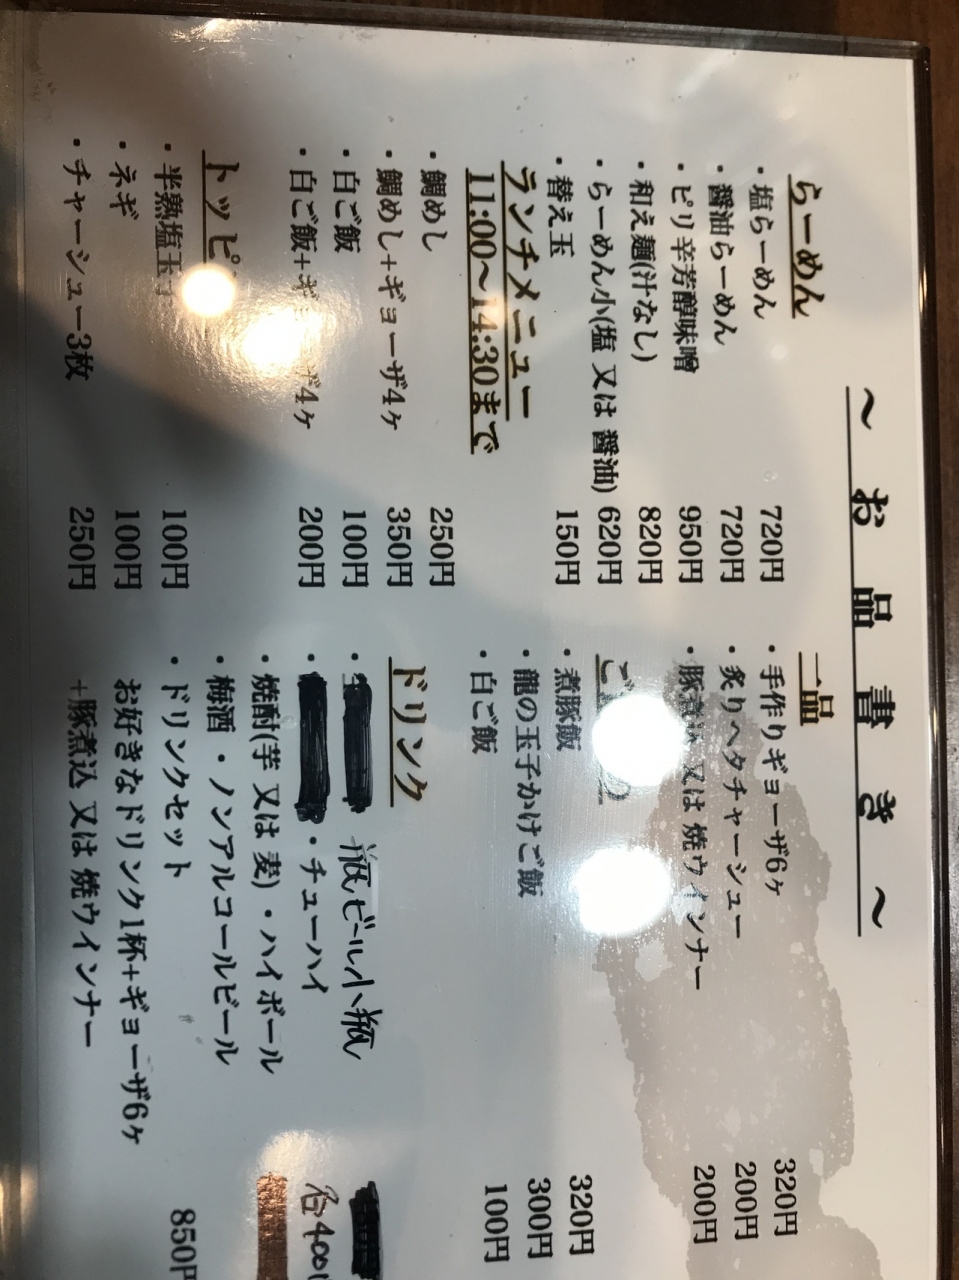 〜お品書き〜
らーめん
・塩らーめん 720円
・醤油らーめん 720円
・ピリ辛芳醇味噌 950円
・和え麺(汁なし) 820円
・らーめん小(塩 又は 醤油) 620円
・替え玉 150円
ランチメニュー
11:00〜14:30まで
・鯛めし 250円
・鯛めし+ギョーザ4ヶ 350円
・白ご飯 100円
・白ご飯+ギョーザ4ヶ 200円
トッピ
・半熟塩玉子 100円
・ネギ 100円
・チャーシュー3枚 250円
一品
・手作りギョーザ6ヶ 320円
・炙りヘタチャーシュー 200円
・豚煮込 又は 焼ウインナー 200円
ご
・煮豚飯 320円
・龍の玉子かけご飯 300円
・白ご飯 100円
ドリンク
・ 瓶ビール小瓶
・ ・チューハイ 各400
・焼酎(芋 又は 麦)・ハイボール
・梅酒・ノンアルコールビール
・ドリンクセット 850円
お好きなドリンク1杯+ギョーザ6ヶ
+豚煮込 又は 焼ウインナー